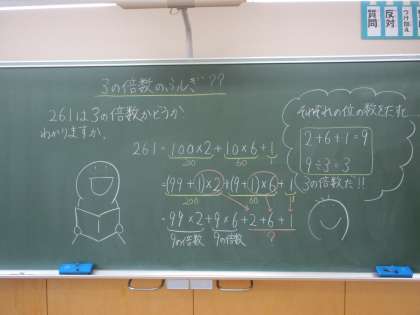 質問
反対
つけ加え
3の倍数のふしぎ??
261は3の倍数かどうか
わかりますか。
261=100×2+10×6+1
200
60
=(99+1)×2+(9+1)×6+1
200
60
=99×2+9×6+2+6+1
9の倍数
9の倍数
?
それぞれの位の数をたす
2+6+1=9
9÷3=3
3の倍数だ!!